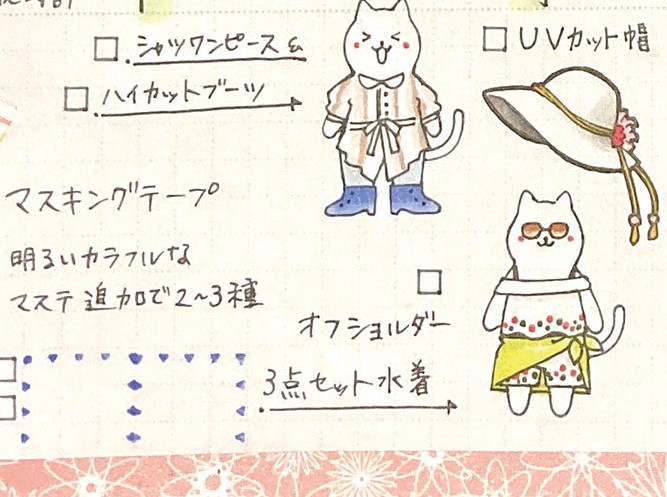 シャツワンピース &
ハイカットブーツ
UVカット帽
マスキングテープ
明るいカラフルな
マステ追加で2~3種
オフショルダー
3点セット水着